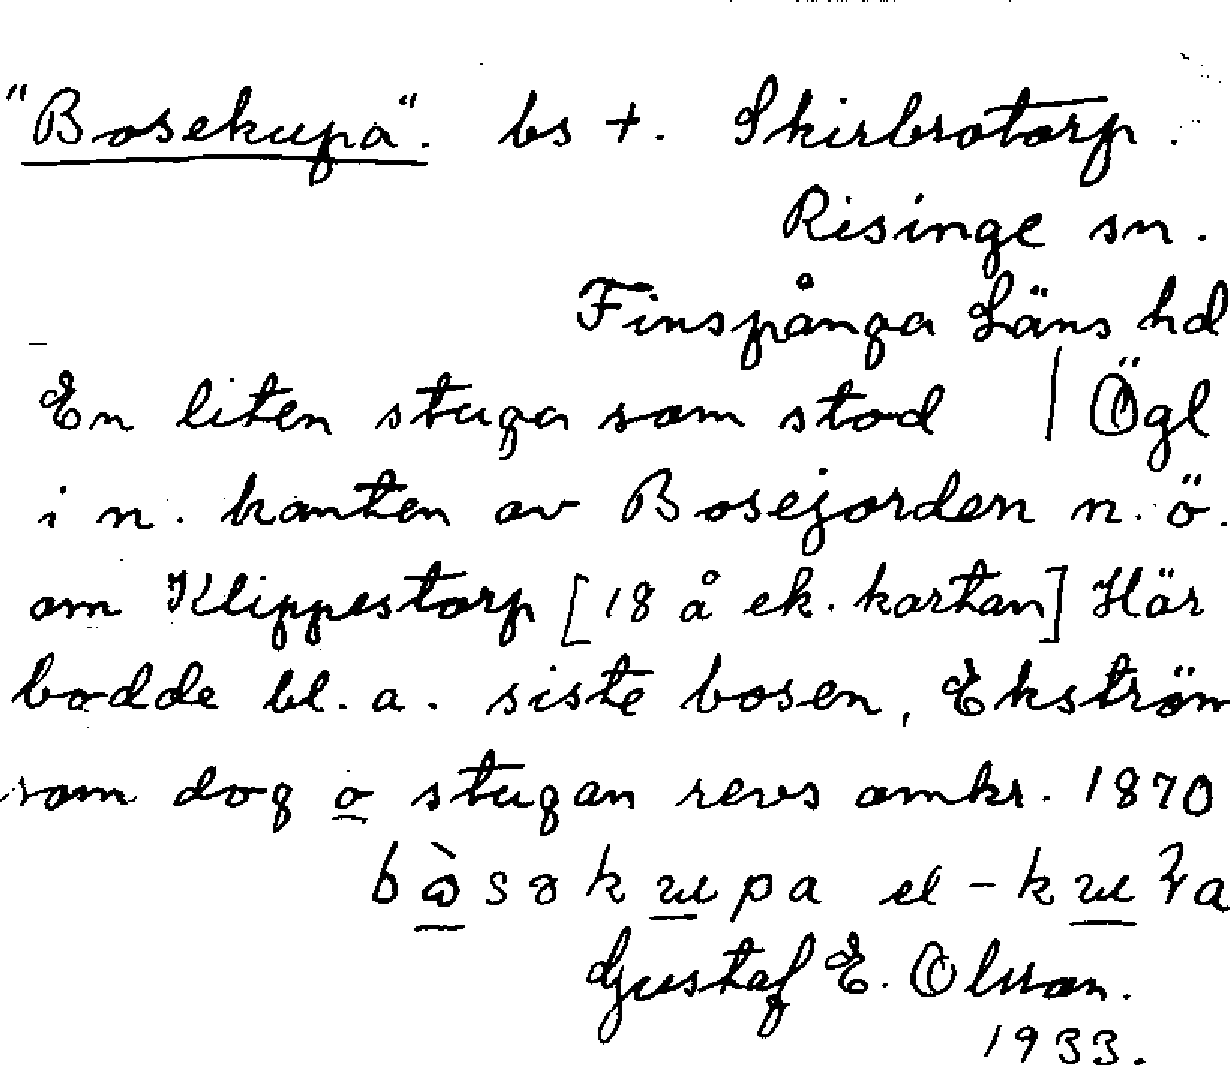 "Bosekupa". bs +. Skirbrotorp.
Risinge sn.
Finspånga Läns hd
En liten stuga som stod | Ögl
i n. kanten av Bosejorden n. ö.
om Klippestorp [18 å ek. kartan] Här
bodde bl. a. siste bosen, Ekström
som dog o stugan revs omkr. 1870
el
Gustaf E. Olsson.
1933.